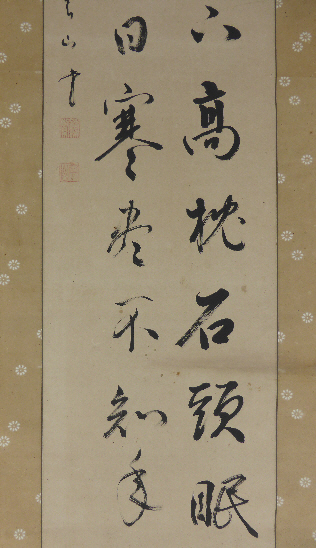 下高枕石頭眠
日寒尽不知年
山書